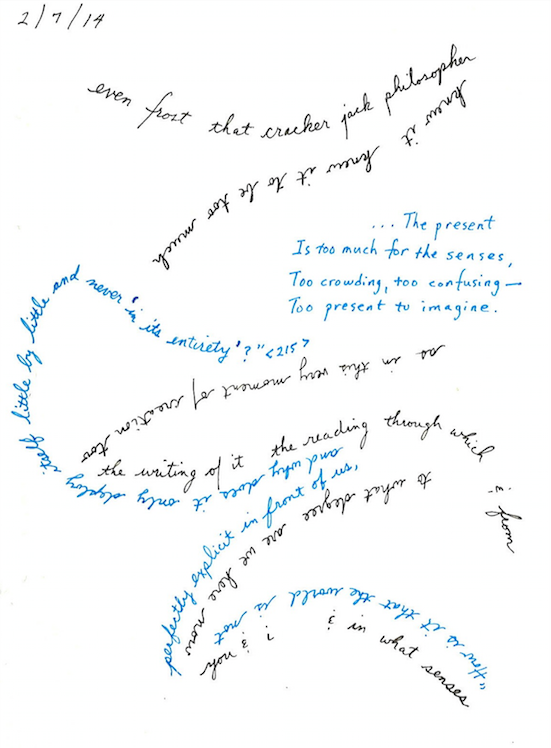 2/7/14
even frost that cracker jack philosopher
knew it knew it to be too much
... The present
Is too much for the senses,
Too crowding, too confusing—
Too present to imagine.
so in this very moment of creation too
the writing of it the reading through which
& from
to what degree are we here now
& ? & in what senses
"How is it that the world is not
perfectly explicit in front of us,
and why does it only deploy
itself little by little and never 'in its entirety'?" <215>